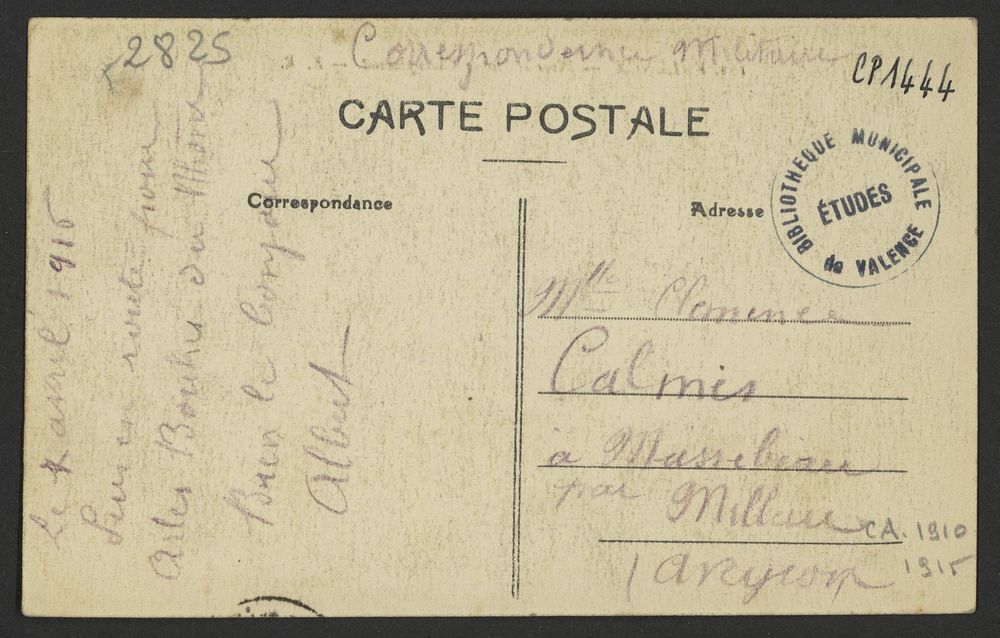 2825
Correspondence Militaire
CP1444
CARTE POSTALE
Correspondance
Adresse
BIBLIOTHEQUE MUNICIPALE
ÉTUDES
de VALENCE
Le avril 1915
Suis en route pour
Arles Bouches du Rhône
Bien le bonjour
Albert
Mlle Clemence
Calmes
à Massebiau
par Millau
(Aveyron
CA. 1910
1915